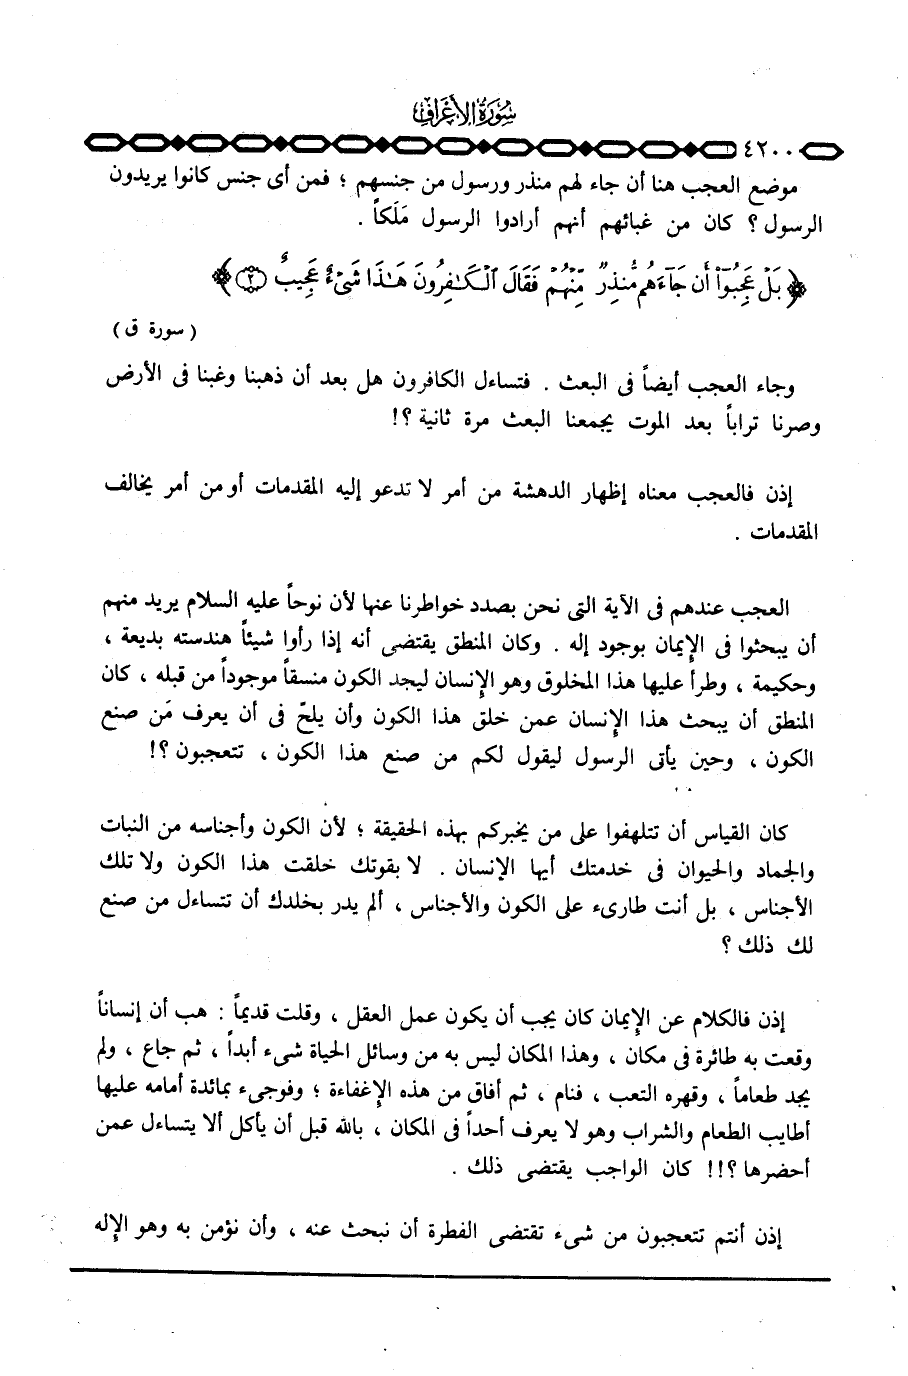 سورة الأعراف
٤٢٠٠
موضع العجب هنا أن جاء لهم منذر ورسول من جنسهم ؛ فمن أى جنس كانوا يريدون
الرسول ؟ كان من غبائهم أنهم أرادوا الرسول مَلَكاً .
﴿ بَلْ عَجِبُوٓا۟ أَن جَآءَهُم مُّنذِرٌ مِّنْهُمْ فَقَالَ ٱلْكَـٰفِرُونَ هَـٰذَا شَىْءٌ عَجِيبٌ ﴿٢﴾ ﴾
( سورة ق )
وجاء العجب أيضاً فى البعث . فتساءل الكافرون هل بعد أن ذهبنا وغبنا فى الأرض
وصرنا تراباً بعد الموت يجمعنا البعث مرة ثانية ؟!
إذن فالعجب معناه إظهار الدهشة من أمر لا تدعو إليه المقدمات أو من أمر يخالف
المقدمات .
العجب عندهم فى الآية التى نحن بصدد خواطرنا عنها لأن نوحاً عليه السلام يريد منهم
أن يبحثوا فى الإيمان بوجود إله . وكان المنطق يقتضى أنه إذا رأوا شيئاً هندسته بديعة ،
وحكيمة ، وطرأ عليها هذا المخلوق وهو الإنسان ليجد الكون منسقاً موجوداً من قبله ، كان
المنطق أن يبحث هذا الإنسان عمن خلق هذا الكون وأن يلحّ فى أن يعرف مَن صنع
الكون ، وحين يأتى الرسول ليقول لكم من صنع هذا الكون ، تتعجبون ؟!
كان القياس أن تتلهفوا على من يخبركم بهذه الحقيقة ؛ لأن الكون وأجناسه من النبات
والجماد والحيوان فى خدمتك أيها الإنسان . لا بقوتك خلقت هذا الكون ولا تلك
الأجناس ، بل أنت طارىء على الكون والأجناس ، ألم يدر بخلدك أن تتساءل من صنع
لك ذلك ؟
إذن فالكلام عن الإيمان كان يجب أن يكون عمل العقل ، وقلت قديماً : هب أن إنساناً
وقعت به طائرة فى مكان ، وهذا المكان ليس به من وسائل الحياة شىء أبداً ، ثم جاع ، ولم
يجد طعاماً ، وقهره التعب ، فنام ، ثم أفاق من هذه الإغفاءة ؛ وفوجىء بمائدة أمامه عليها
أطايب الطعام والشراب وهو لا يعرف أحداً فى المكان ، بالله قبل أن يأكل ألا يتساءل عمن
أحضرها ؟!!! كان الواجب يقتضى ذلك .
إذن أنتم تتعجبون من شىء تقتضى الفطرة أن نبحث عنه ، وأن نؤمن به وهو الإله